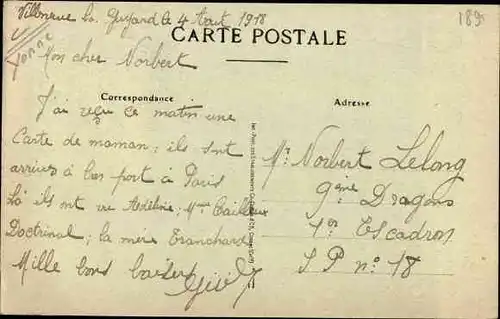 Villeneuve la Guyard le 4 Aout 1918
Yonne
189
CARTE POSTALE
Mon cher Norbert
Correspondance
Adresse
J'ai reçu ce matin une
Carte de maman; ils sont
arrivés à bon port à Paris
Là ils ont vu Adeline; Mme Cailleux
Doctrinal; la mère Tranchard
Mille bons baisers
Mr Norbert Lelong
9ème Dragons
1er Escadron
S P n° 18